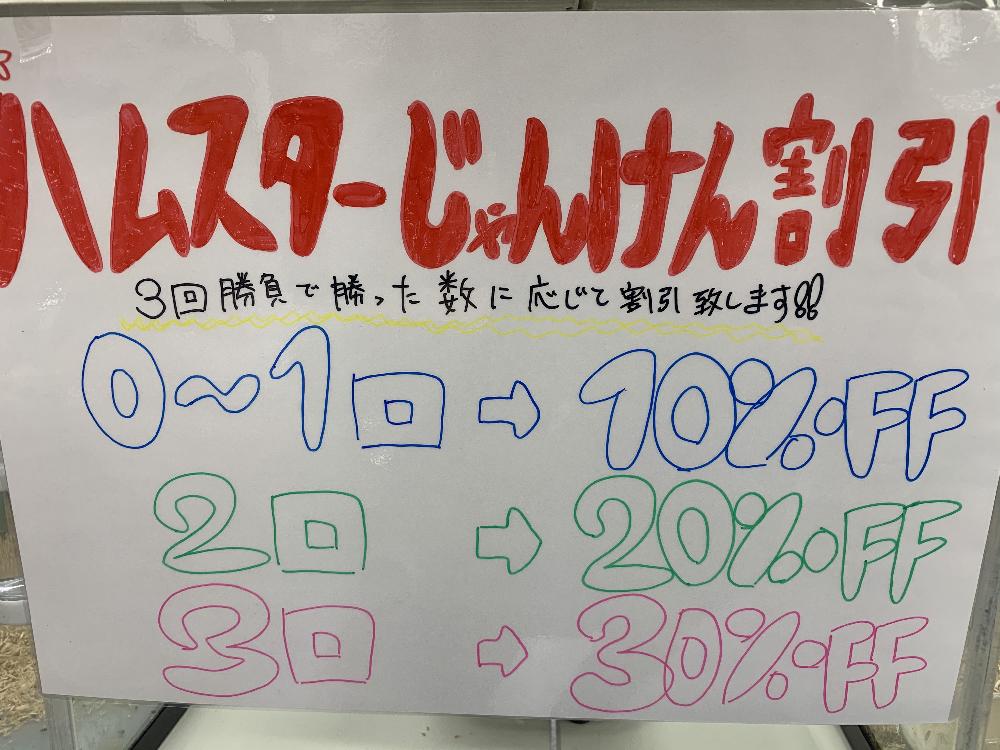 ハムスターじゃんけん割引
3回勝負で勝った数に応じて割引致します!!
0〜1回 ⇨ 10%OFF
2回 ⇨ 20%OFF
3回 ⇨ 30%OFF